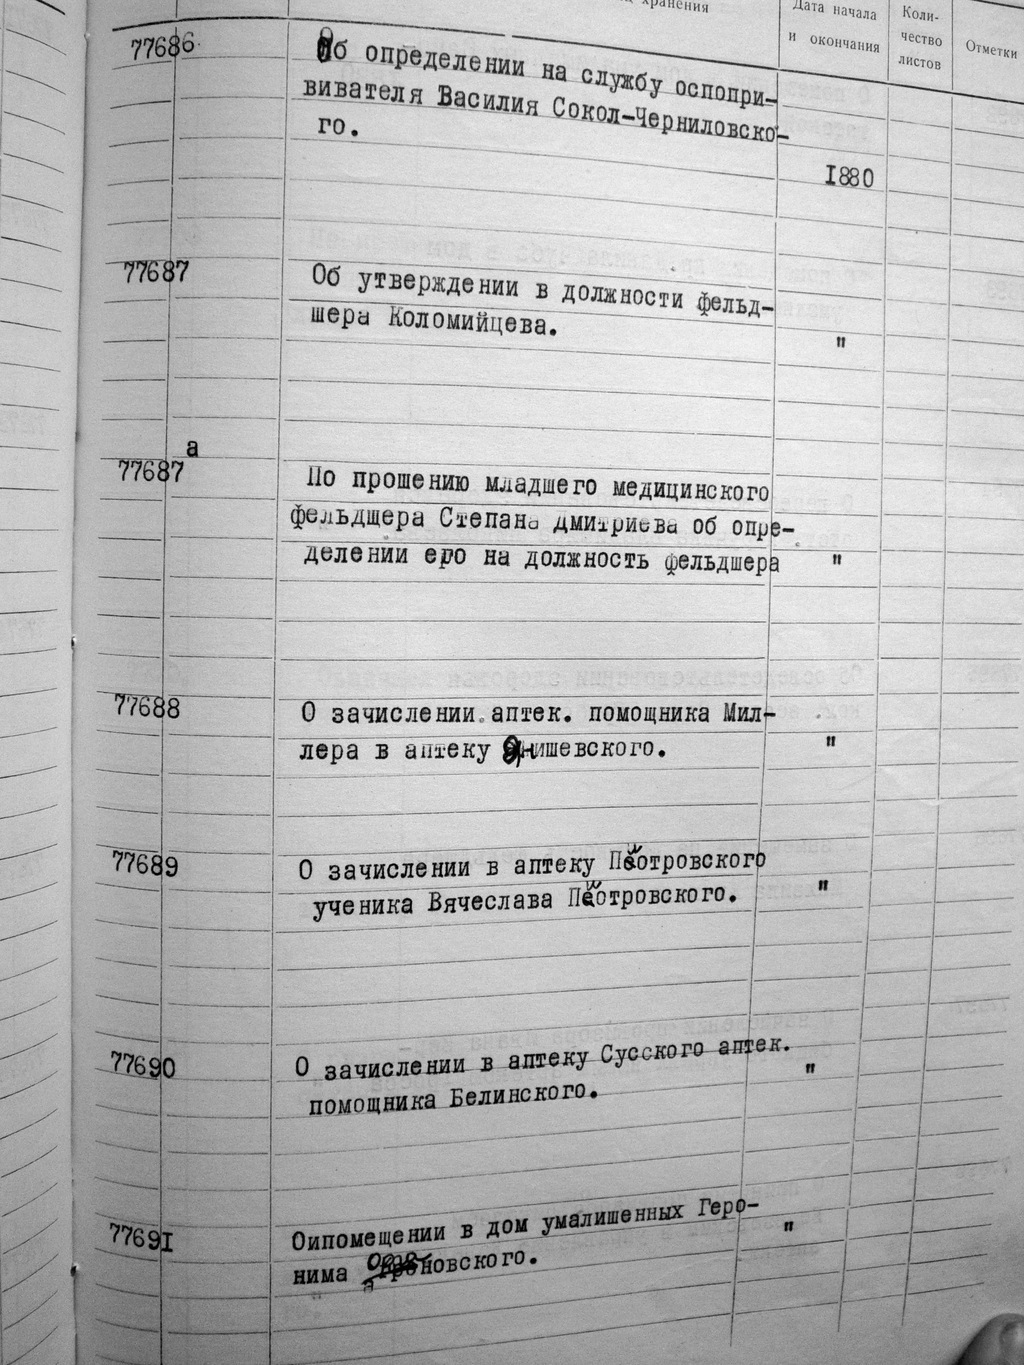 хранения
Дата начала
и окончания
Коли-
чество
листов
Отметки
77686
Об определении на службу оспопри-
вивателя Василия Сокол-Черниловско-
го.
1880
77687
Об утверждении в должности фельд-
шера Коломийцева.
"
77687 а
По прошению младшего медицинского
фельдщера Степана Дмитриева об опре-
делении его на должность фельдшера
"
77688
О зачислении аптек. помощника Мил-
лера в аптеку
"
77689
О зачислении в аптеку
ученика Вячеслава
"
77690
О зачислении в аптеку Сусского аптек.
помощника Белинского.
"
77691
Оипомещении в дом умалишенных Геро-
нима
"